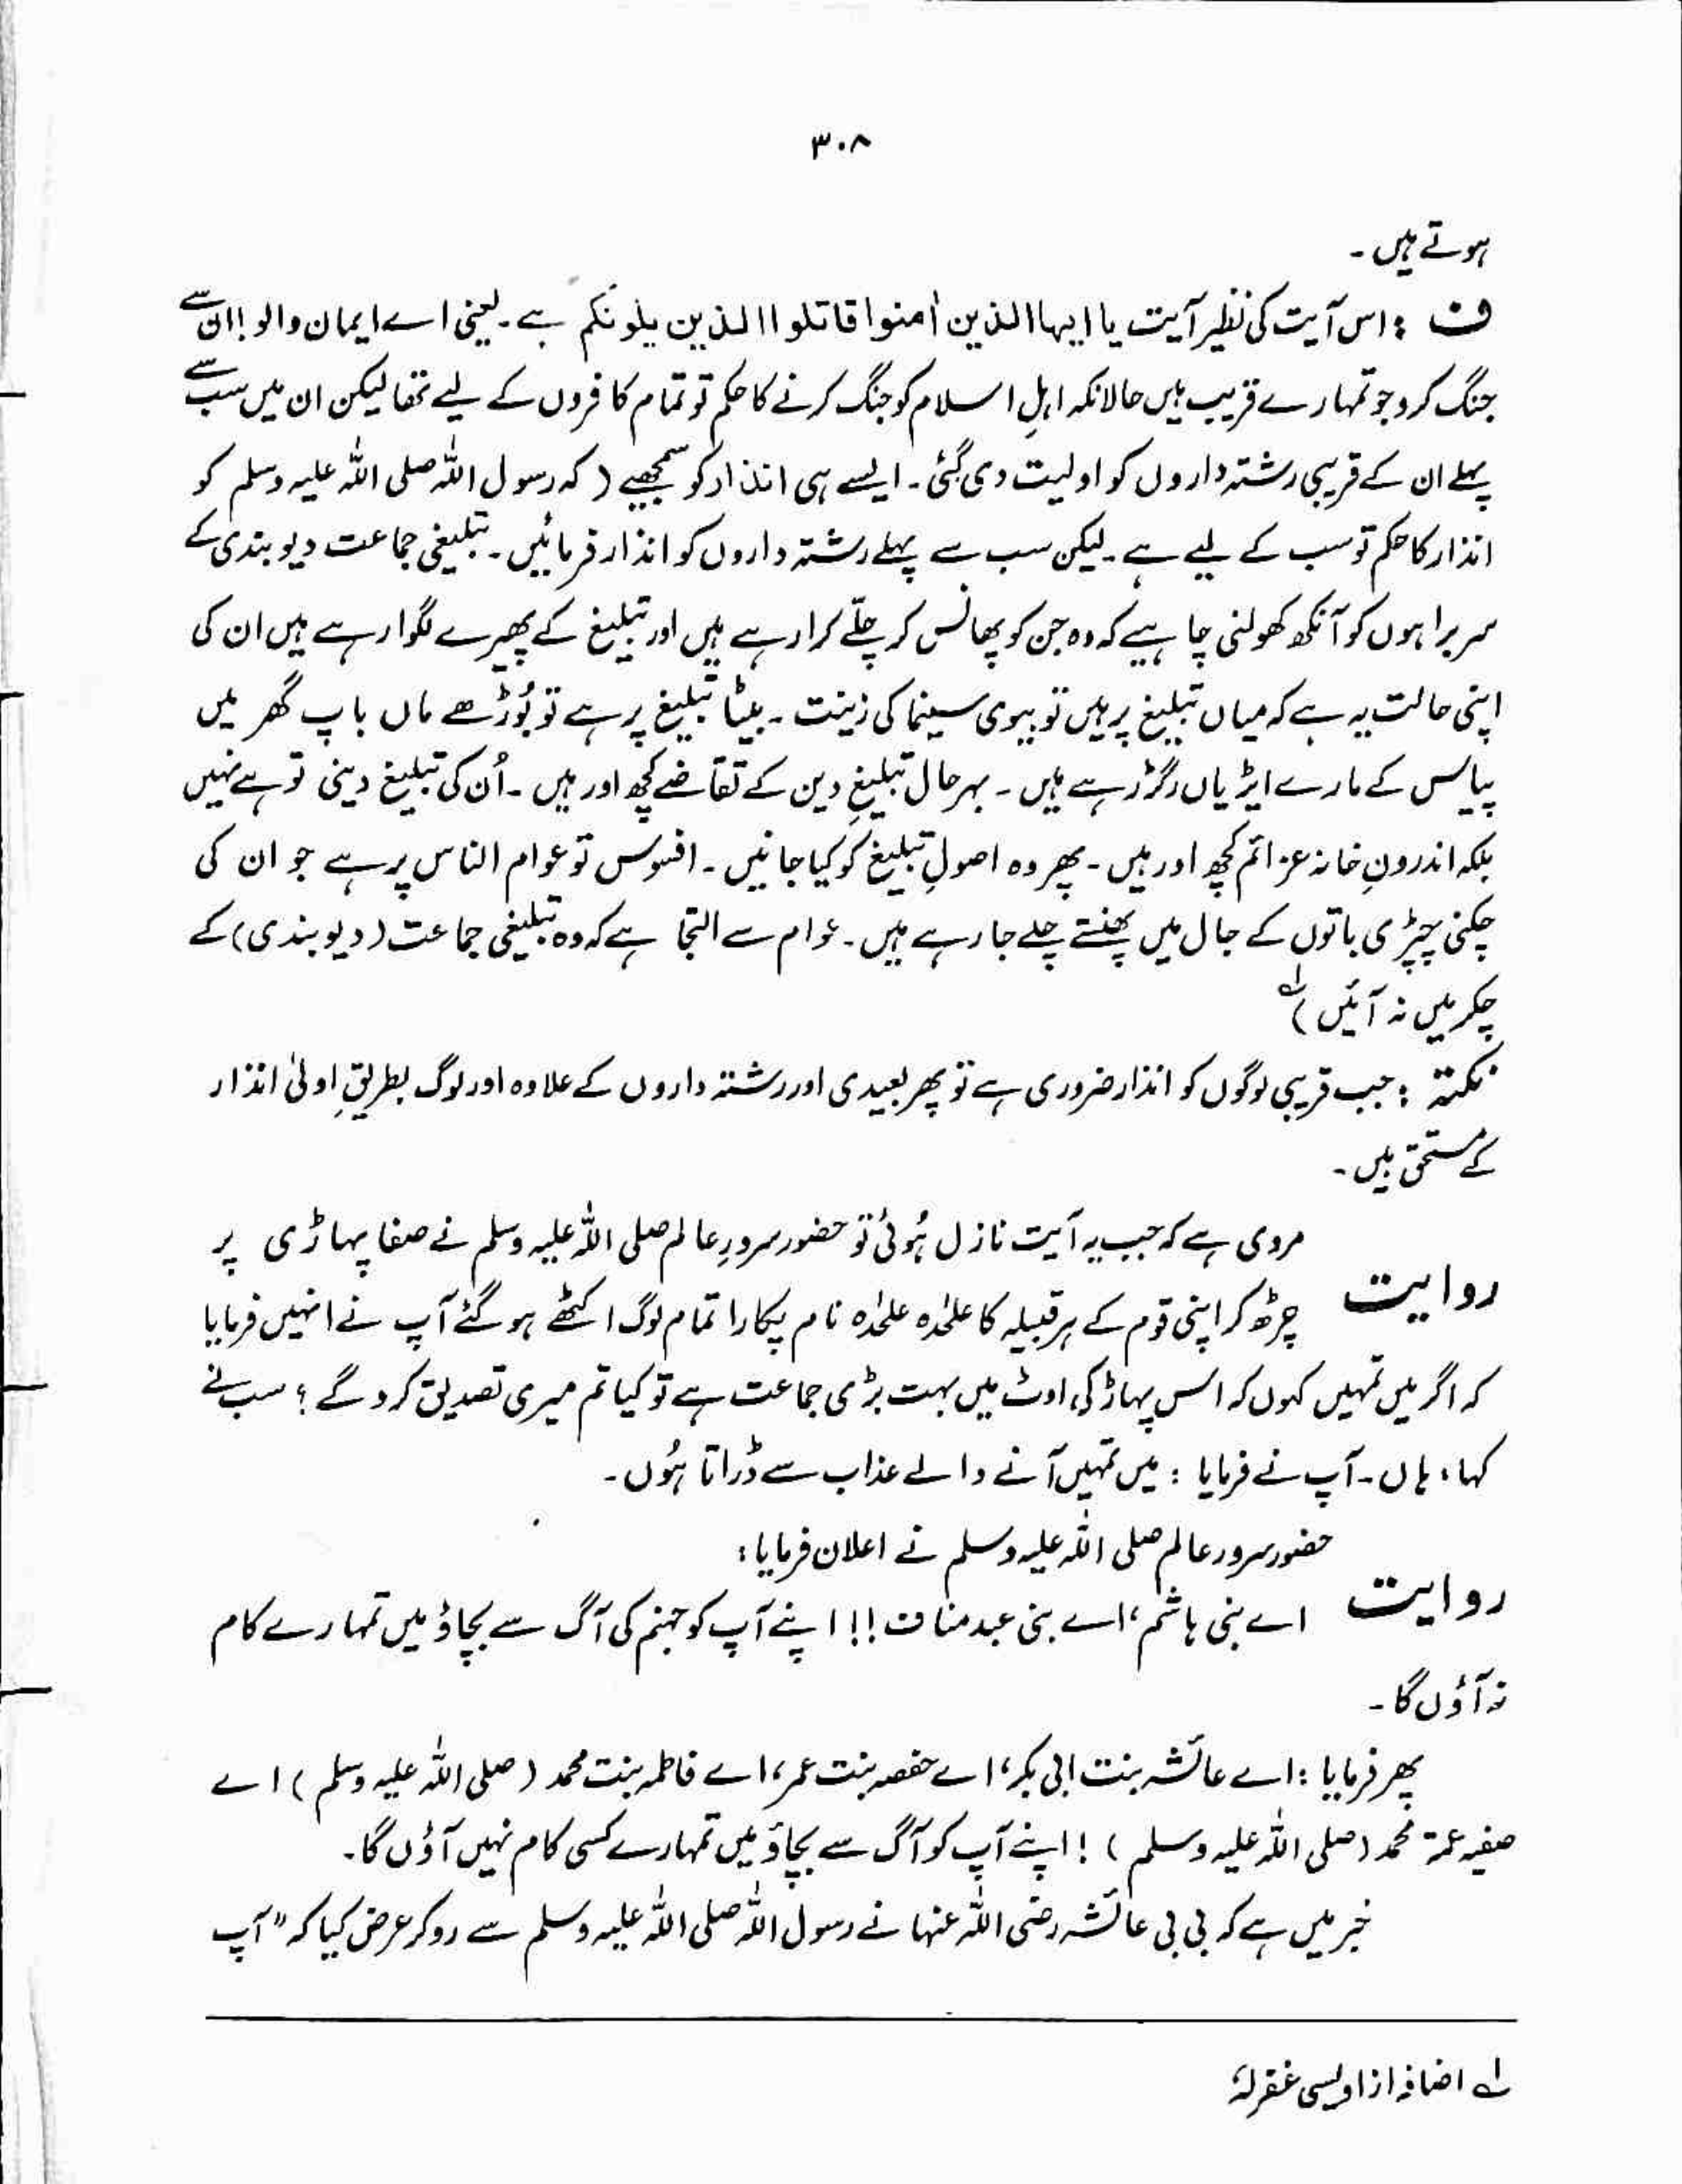 ۳۰۸
ہوتے ہیں ۔
ف : اس آیت کی نظیر آیت یا ایہا الذین اٰمنوا قاتلوا الذین یلونکم ہے ۔ یعنی اے ایمان والو ! ان سے
جنگ کرو جو تمہارے قریب ہیں حالانکہ اہلِ اسلام کو جنگ کرنے کا حکم تو تمام کافروں کے لیے تھا لیکن ان میں سب سے
پہلے ان کے قریبی رشتہ داروں کو اولیت دی گئی ۔ ایسے ہی انذار کو سمجھیے ( کہ رسول اللہ صلی اللہ علیہ وسلم کو
انذار کا حکم تو سب کے لیے ہے ۔ لیکن سب سے پہلے رشتہ داروں کو انذار فرمائیں ۔ تبلیغی جماعت دیوبندی کے
سربراہوں کو آنکھ کھولنی چاہیے کہ وہ جن کو پھانس کر چلّے کرا رہے ہیں اور تبلیغ کے پھیرے لگوا رہے ہیں ان کی
اپنی حالت یہ ہے کہ میاں تبلیغ پر ہیں تو بیوی سینما کی زینت ۔ بیٹا تبلیغ پر ہے تو بُوڑھے ماں باپ گھر میں
پیاس کے مارے ایڑیاں رگڑ رہے ہیں ۔ بہرحال تبلیغِ دین کے تقاضے کچھ اور ہیں ۔ اُن کی تبلیغ دینی تو ہے نہیں
بلکہ اندرونِ خانہ عزائم کچھ اور ہیں ۔ پھر وہ اصولِ تبلیغ کو کیا جانیں ۔ افسوس تو عوام الناس پر ہے جو ان کی
چکنی چپڑی باتوں کے جال میں پھنستے چلے جا رہے ہیں ۔ عوام سے التجا ہے کہ وہ تبلیغی جماعت ( دیوبندی ) کے
چکر میں نہ آئیں ) لہ
نکتہ : جب قریبی لوگوں کو انذار ضروری ہے تو پھر بعیدی اور رشتہ داروں کے علاوہ اور لوگ بطریقِ اولیٰ انذار
کے مستحق ہیں ۔
مروی ہے کہ جب یہ آیت نازل ہُوئی تو حضور سرورِ عالم صلی اللہ علیہ وسلم نے صفا پہاڑی پر
روایت
چڑھ کر اپنی قوم کے ہر قبیلہ کا علٰحدہ علٰحدہ نام پکارا تمام لوگ اکٹھے ہو گئے آپ نے انہیں فرمایا
کہ اگر میں تمہیں کہوں کہ اس پہاڑ کی اوٹ میں بہت بڑی جماعت ہے تو کیا تم میری تصدیق کرو گے ؟ سب نے
کہا ، ہاں ۔ آپ نے فرمایا : میں تمہیں آنے والے عذاب سے ڈراتا ہُوں ۔
حضور سرور عالم صلی اللہ علیہ وسلم نے اعلان فرمایا :
روایت
اے بنی ہاشم ، اے بنی عبد مناف !! اپنے آپ کو جہنم کی آگ سے بچاؤ میں تمہارے کام
نہ آؤں گا ۔
پھر فرمایا : اے عائشہ بنت ابی بکر ، اے حفصہ بنت عمر ، اے فاطمہ بنت محمد ( صلی اللہ علیہ وسلم ) اے
صفیہ عمۃ محمد ( صلی اللہ علیہ وسلم ) ! اپنے آپ کو آگ سے بچاؤ میں تمہارے کسی کام نہیں آؤں گا ۔
خبر میں ہے کہ بی بی عائشہ رضی اللہ عنہا نے رسول اللہ صلی اللہ علیہ وسلم سے رو کر عرض کیا کہ " آپ
لہ اضافہ از اویسی غفرلہٗ